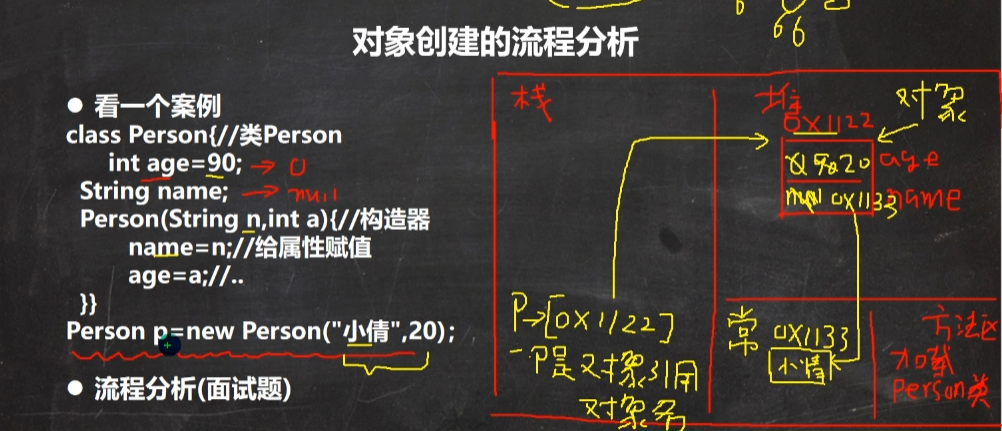 66
对象创建的流程分析
● 看一个案例
class Person{//类Person
int age=90; → 0
String name; → null
Person(String n,int a){//构造器
name=n;//给属性赋值
age=a;//..
}}
Person p=new Person("小倩",20);
● 流程分析(面试题)
栈
P→[0X1122]
P是对象引用
对象名
堆
对象
0X1122
0 90 20 age
null 0X1133 name
常
0X1133
小倩
方法区
加载
Person类